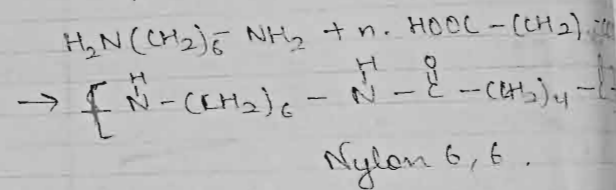 H₂N(CH₂)₆ NH₂ + n. HOOC - (CH₂)
→ [ N(H) - (CH₂)₆ - N(H) - C(=O) - (CH₂)₄ - C
Nylon 6,6.